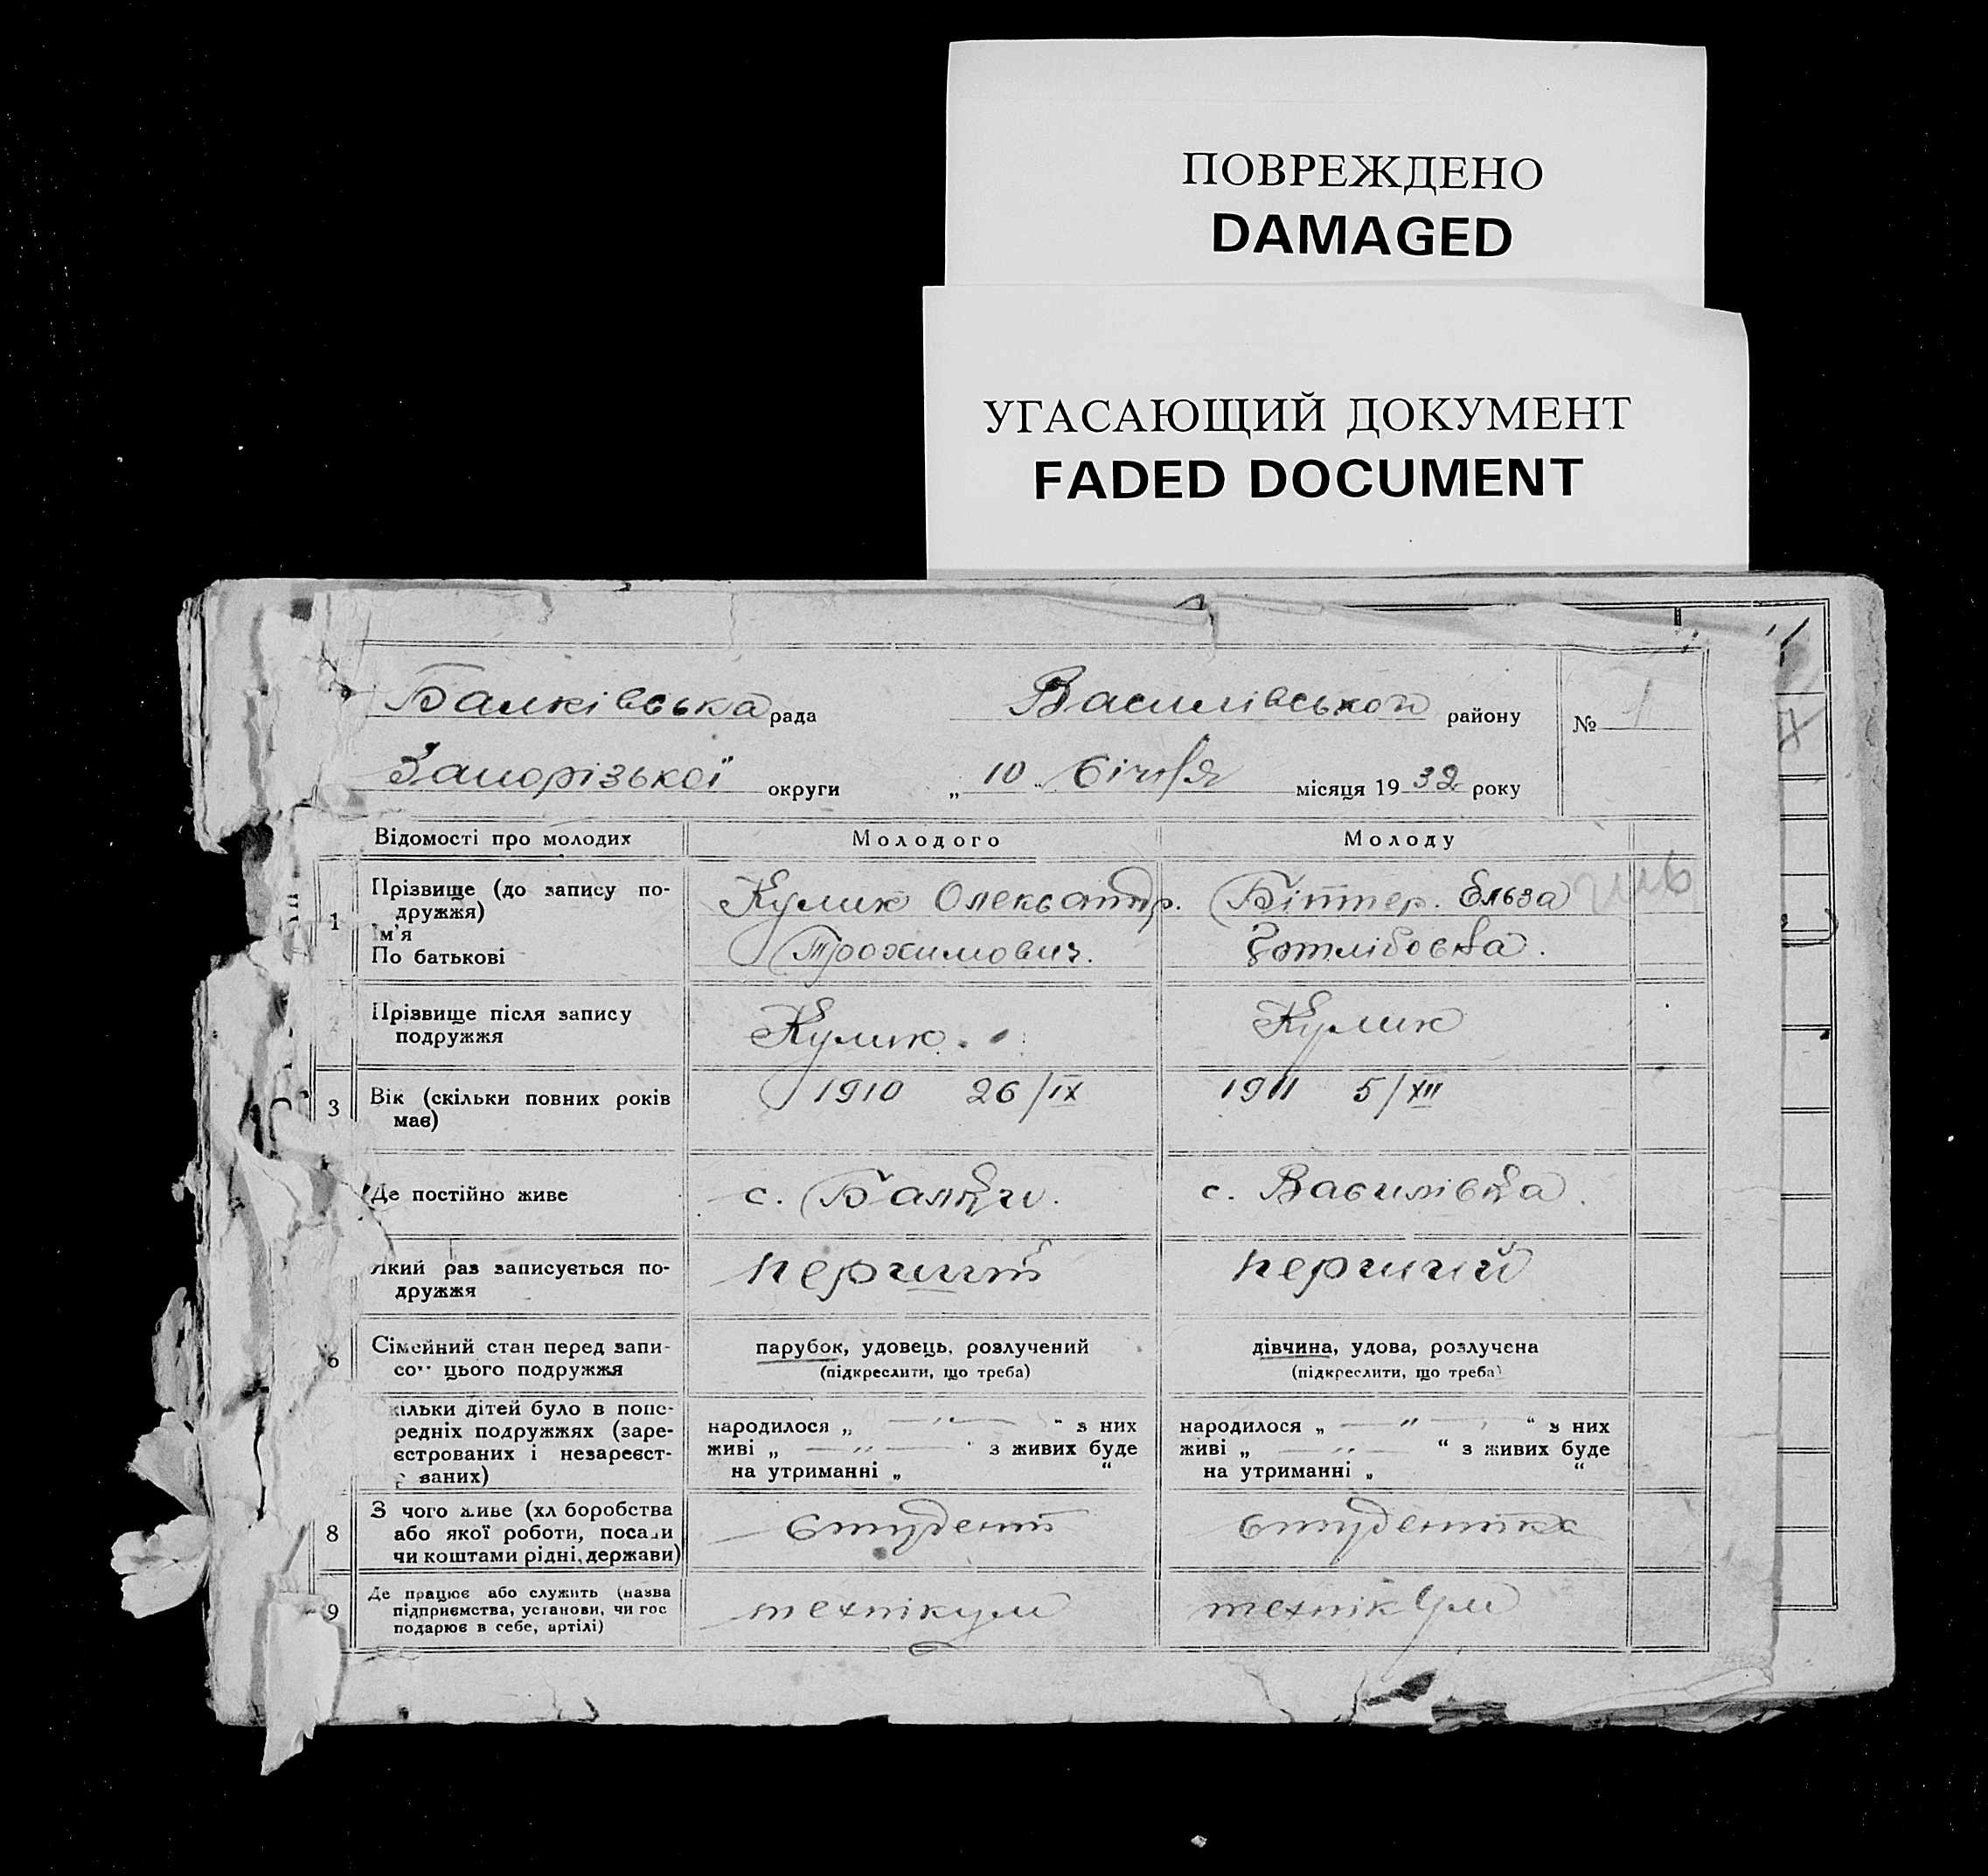 ПОВРЕЖДЕНО
DAMAGED
УГАСАЮЩИЙ ДОКУМЕНТ
FADED DOCUMENT
Балківська рада Василівської району № 1
Запорізької округи „ 10 " Січня місяця 19 32 року
Відомості про молодих Молодого Молоду
1 Прізвище (до запису по-
дружжя) Кулик Олександр. Біттер. Ельза
Ім'я
По батькові Трохимович. Готлібовна.
Прізвище після запису
подружжя Кулик. Кулик
3 Вік (скільки повних років 1910 26/IX 1911 5/XII
має)
Де постійно живе с. Балки. с. Василівка.
Який раз записується по-
дружжя перший перший
6 Сімейний стан перед запи- парубок, удовець, розлучений дівчина, удова, розлучена
со.. цього подружжя (підкреслити, що треба) (підкреслити, що треба)
кільки дітей було в попе-
редніх подружжях (заре- народилося „ — „ — " з них народилося „ — „ — " з них
єстрованих і незареєст- живі „ — „ — " з живих буде живі „ — „ — " з живих буде
ваних) на утриманні „ " на утриманні „ "
8 З чого живе (хл боробства
або якої роботи, посади студент студентка
чи коштами рідні, держави)
9 Де працює або служить (назва
підприємства, установи, чи гос технікум технікум
подарює в себе, артілі)